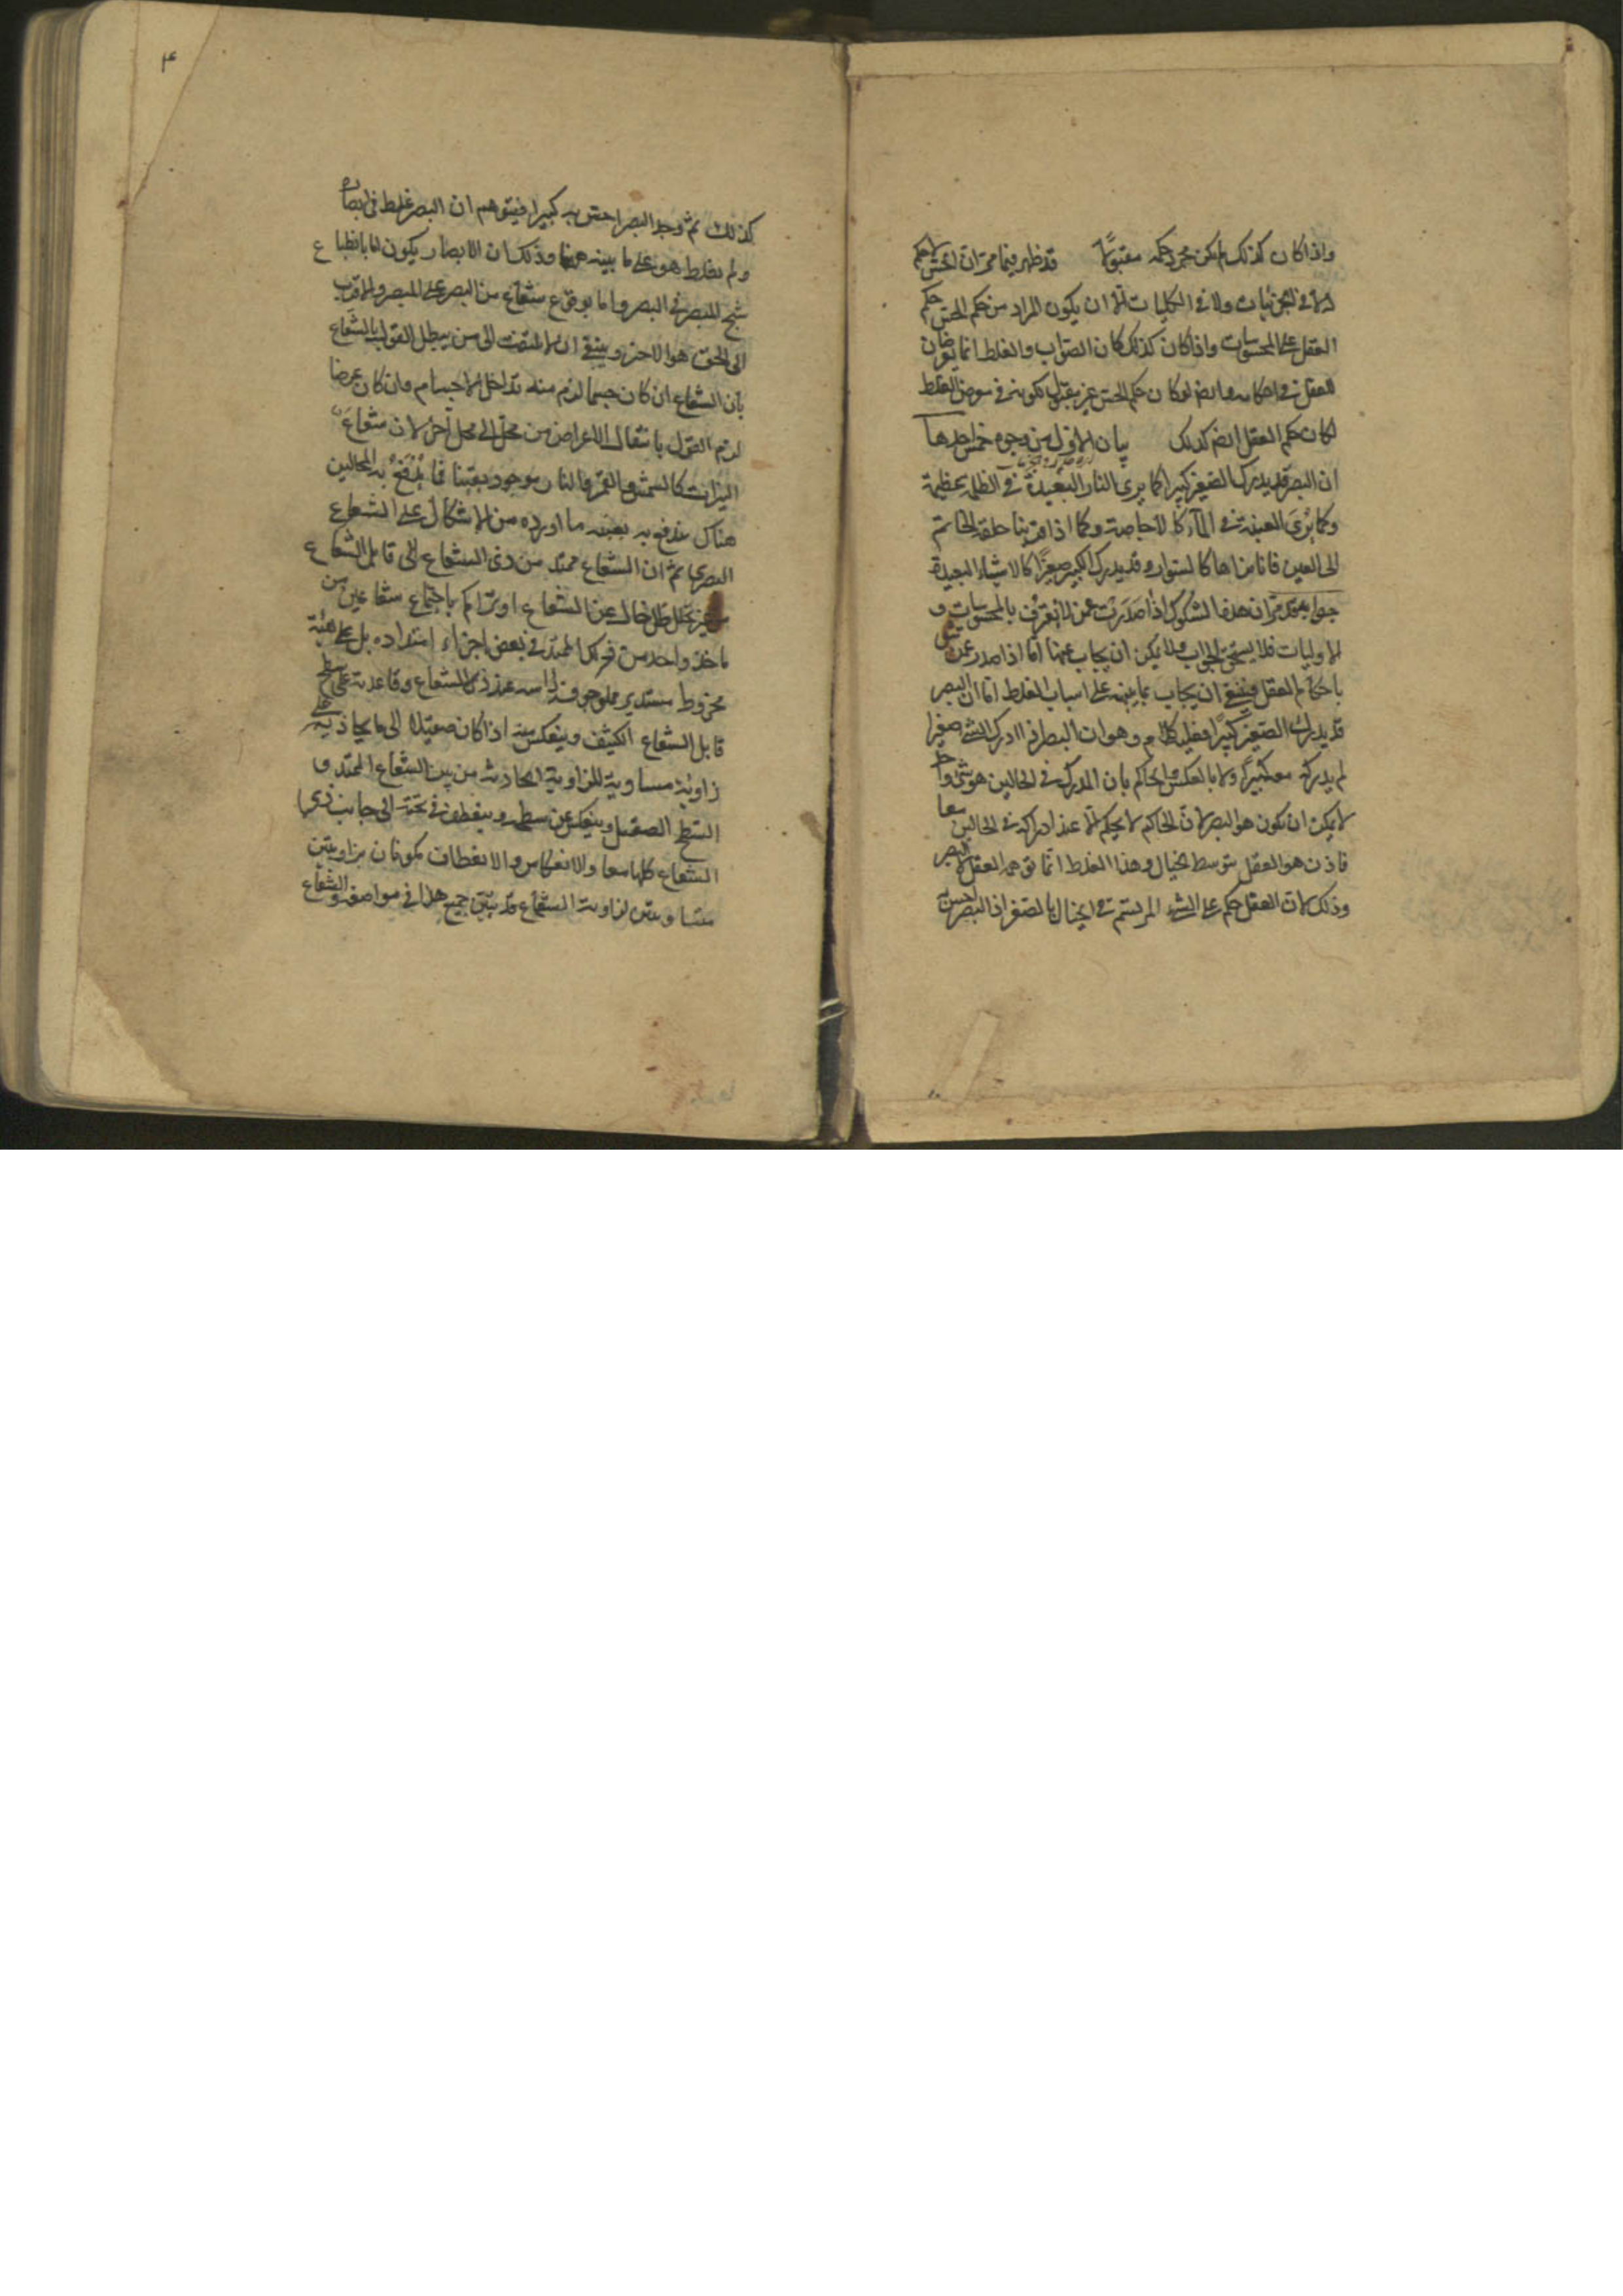 واذا كان كذلك لم يكن مجرد حكمه مقبولا قد ظهر فيما مر ان الحس لا حكم
له لا في الجزئيات ولا في الكليات الا ان يكون المراد من حكم الحس حكم
العقل على المحسوسات واذا كان كذلك كان الصواب والغلط انما يعرضان
للعقل في احكامه وايض لو كان حكم الحس غير مقبول لكونه في معرض الغلط
لكان حكم العقل ايض كذلك بيان الاول من وجوه خمس احدها
ان البصر قد يدرك الصغير كبيرا كما يرى النار البعيدة في الظلمة عظيمة
وكما يرى العنبة في الماء كالاجاصة وكما اذا قربنا حلقة الخاتم
الى العين فانا نراها كالسوار وقد يدرك الكبير صغيرا كالاشياء البعيدة
جوابه قد مر ان هذه الشكوك اذا صدرت عمن لا يعترف بالمحسوسات و
الاوليات فلا يستحق الجواب ولا يمكن ان يجاب عنها اما اذا صدر عمن يثق
باحكام العقل فينبغي ان يجاب بما ينبه على اسباب الغلط اما ان البصر
قد يدرك الصغير كبيرا ففيه كلام وهو ان البصر اذا ادرك الشئ صغيرا
لم يدركه معه كبيرا ولا بالعكس والحاكم بان المدرك في الحالين هو شئ واحد
لا يمكن ان يكون هو البصر لان الحاكم لا يحكم الا عند ادراكه في الحالين معا
فاذن هو العقل بتوسط الخيال وهذا الغلط انما توهمه العقل لا البصر
وذلك لان العقل حكم على الشئ المرتسم في الخيال بالصغر اذ البصر احس به
۴
كذلك ثم وجد البصر احس به كبيرا فيتوهم ان البصر غلط في ابصاره
ولم يغلط هو على ما يبينه ههنا وذلك ان الابصار يكون اما بانطباع
شبح المبصر في البصر واما بوقوع شعاع من البصر على المبصر والاقرب
الى الحق هو الاخر وينبغي ان لا يلتفت الى من يبطل القول بالشعاع
بان الشعاع ان كان جسما لزم منه تداخل الاجسام وان كان عرضا
لزم القول بانتقال الاعراض من محل الى محل آخر لان شعاع
النيرات كالشمس والقمر والنار موجود يقينا فما يندفع به المحالين
هناك يندفع به بعينه ما اورده من الاشكال على الشعاع
البصري ثم ان الشعاع ممتد من ذي الشعاع الى قابل الشعاع
من غير تخلل ظل خال عن الشعاع او تراكم باجتماع شعاعين من
ماخذ واحد من في بعض اجزاء امتداده بل على هيئة
مخروط مستدير مملو جوفه راسه عند ذي الشعاع وقاعدته على سطح
قابل الشعاع الكثيف وينعكس منه اذا كان صقيلا الى ما يحاذيه على
زاوية مساوية للزاوية الحادثة من بين الشعاع الممتد و
السطح الصقيل وينعكس عن سطحه وينعطف في تحته الى جانب ذي
الشعاع كلها معا والانعكاس والانعطاف يكونان بزاويتين
متساويتين لزاوية الشعاع وقد يتبين جميع هذا في مواضعه والشعاع